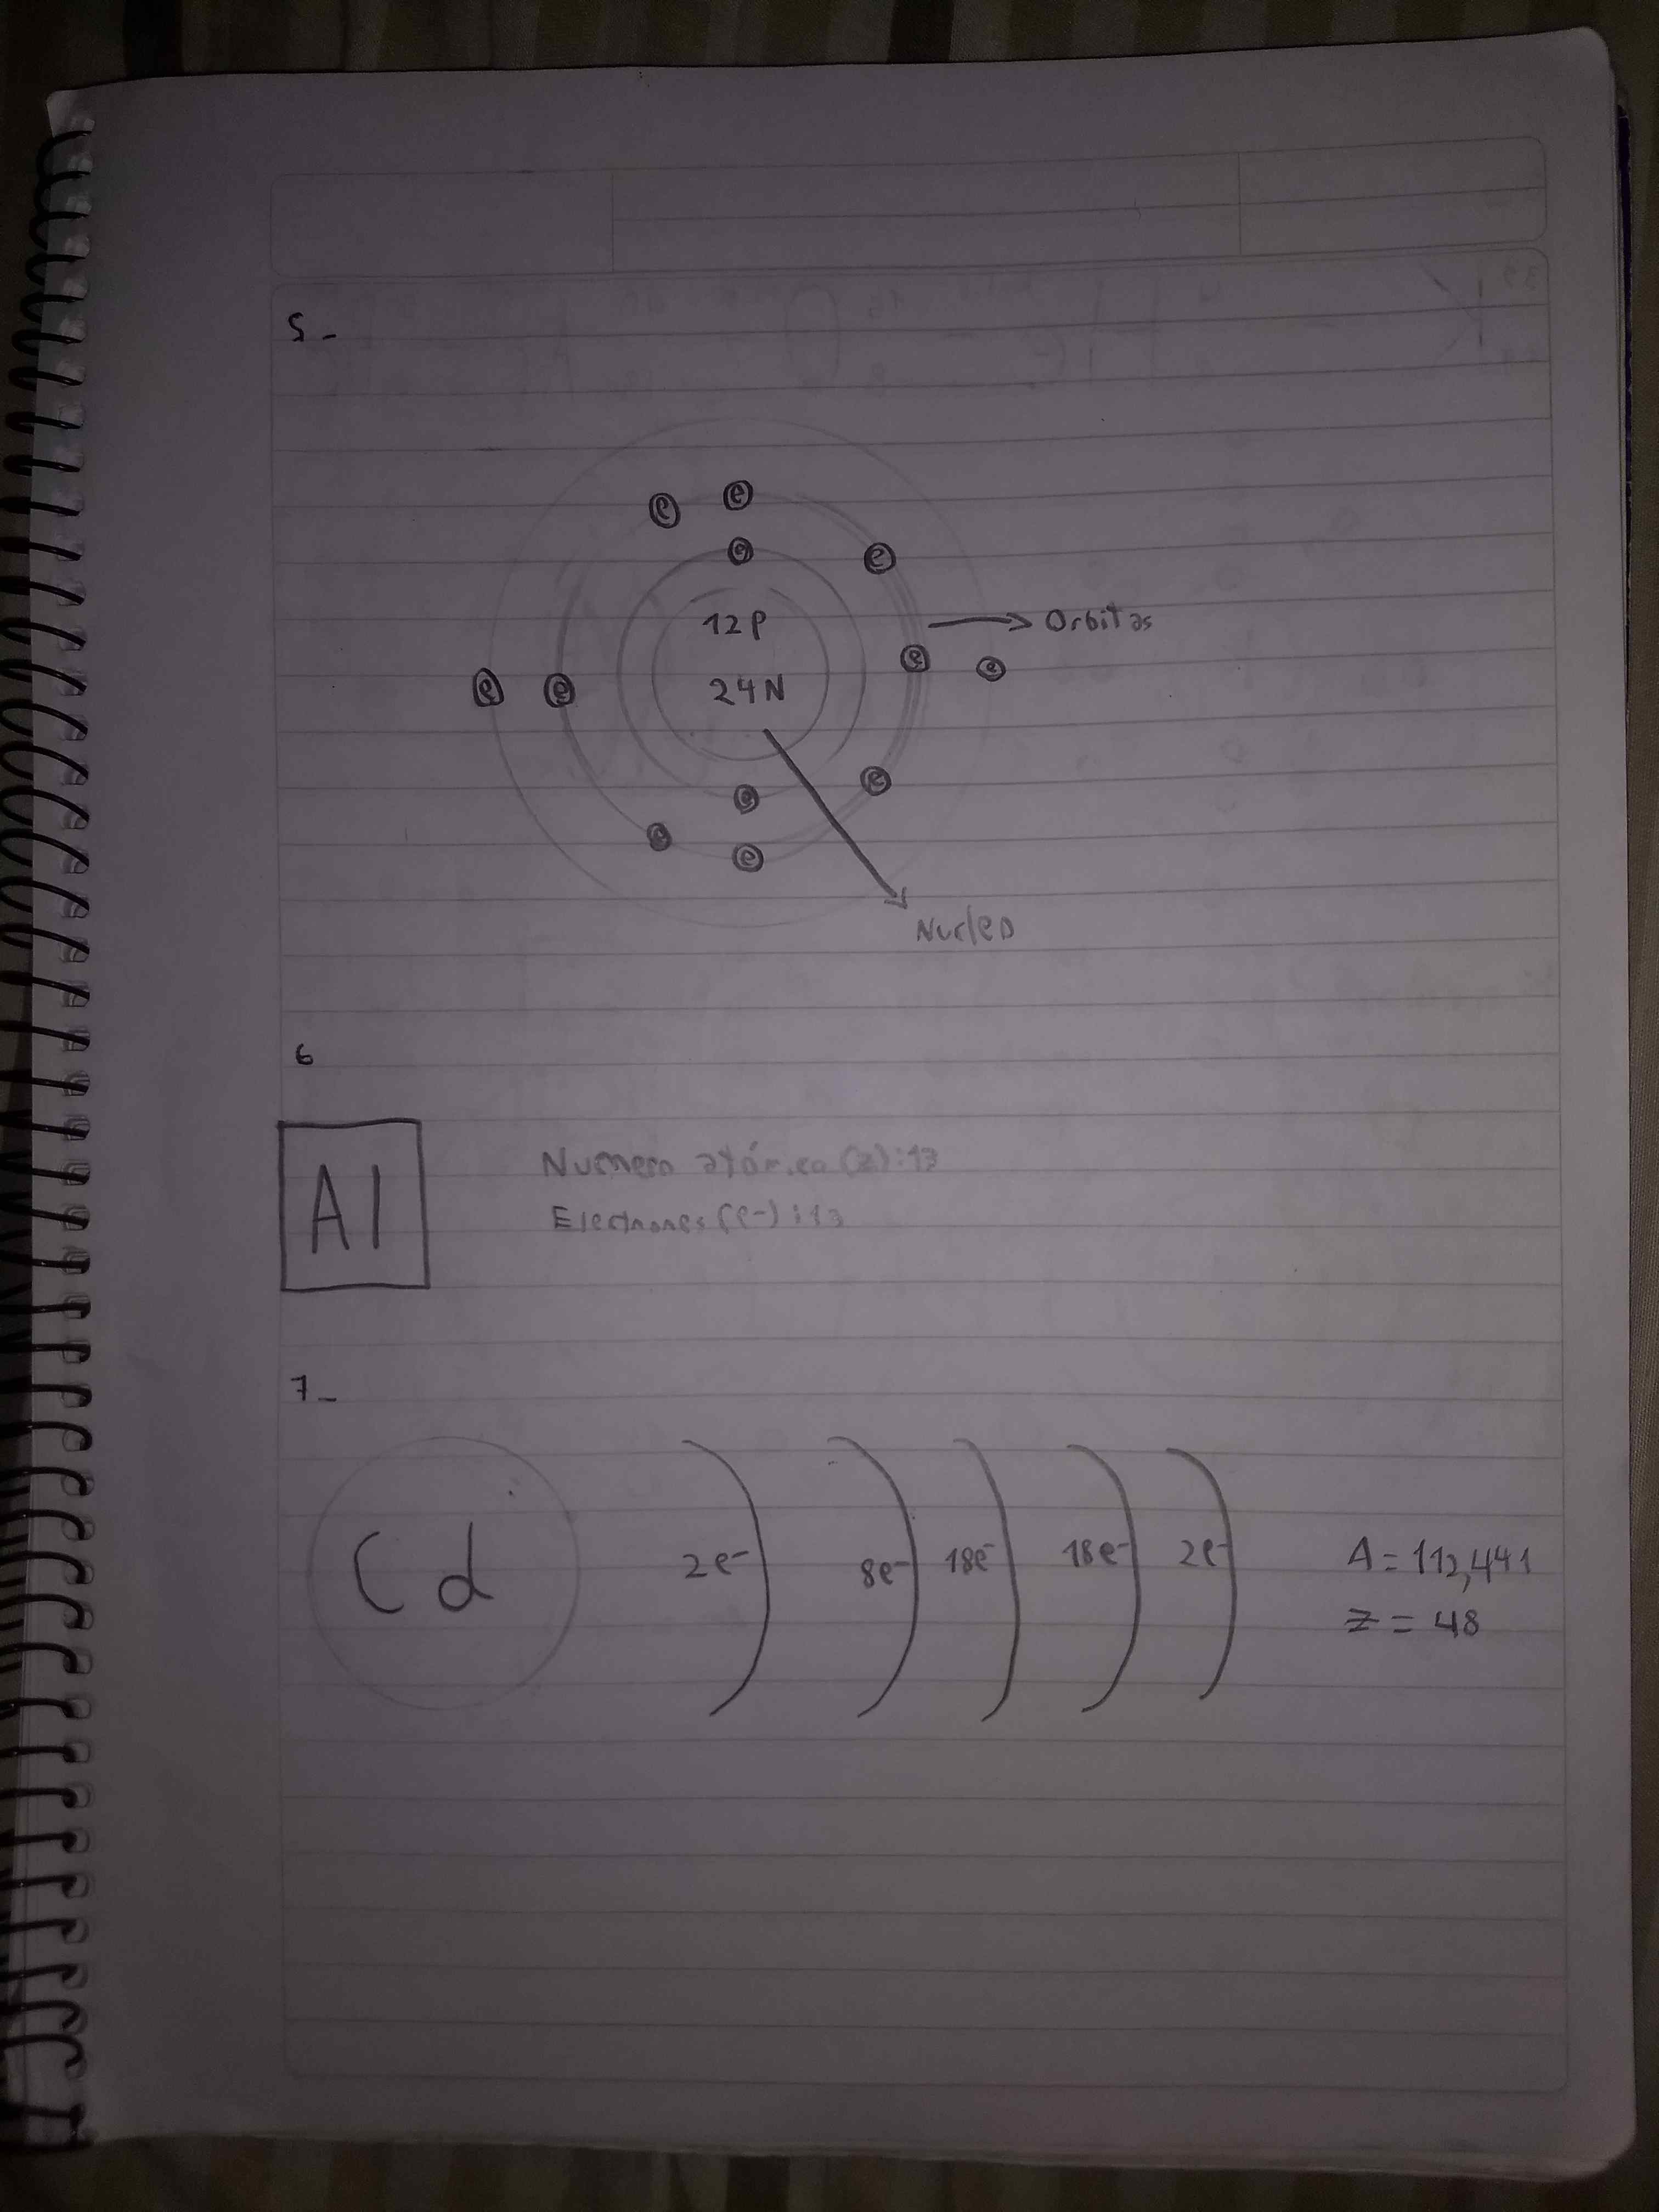 5-
e e
e e
12P
→ Orbitas
24N
e e e e
e e
e e
Nucleo
6
Al
Numero atómico (z):13
Electrones (e-):13
7-
Cd 2e- 8e- 18e- 18e- 2e- A= 112,441
z = 48